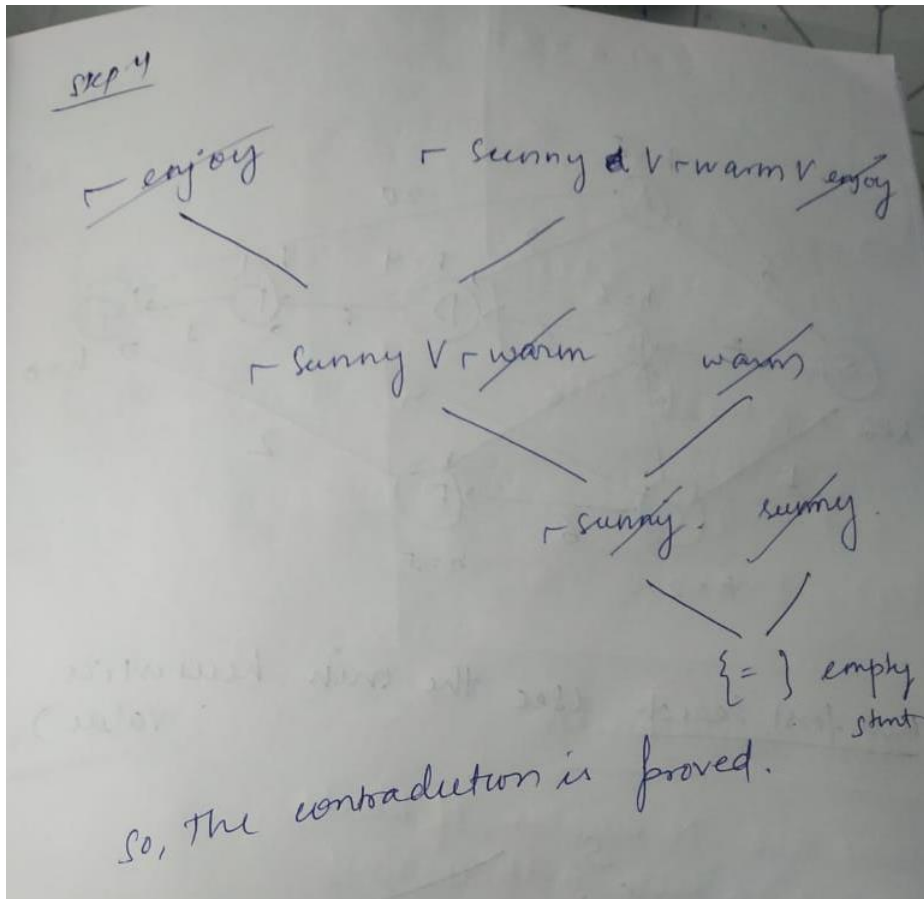 Step 4
¬ enjoy ¬ sunny V ¬ warm V enjoy
¬ sunny V ¬ warm warm
¬ sunny. sunny.
{=} empty
stmt
So, The contradiction is proved.